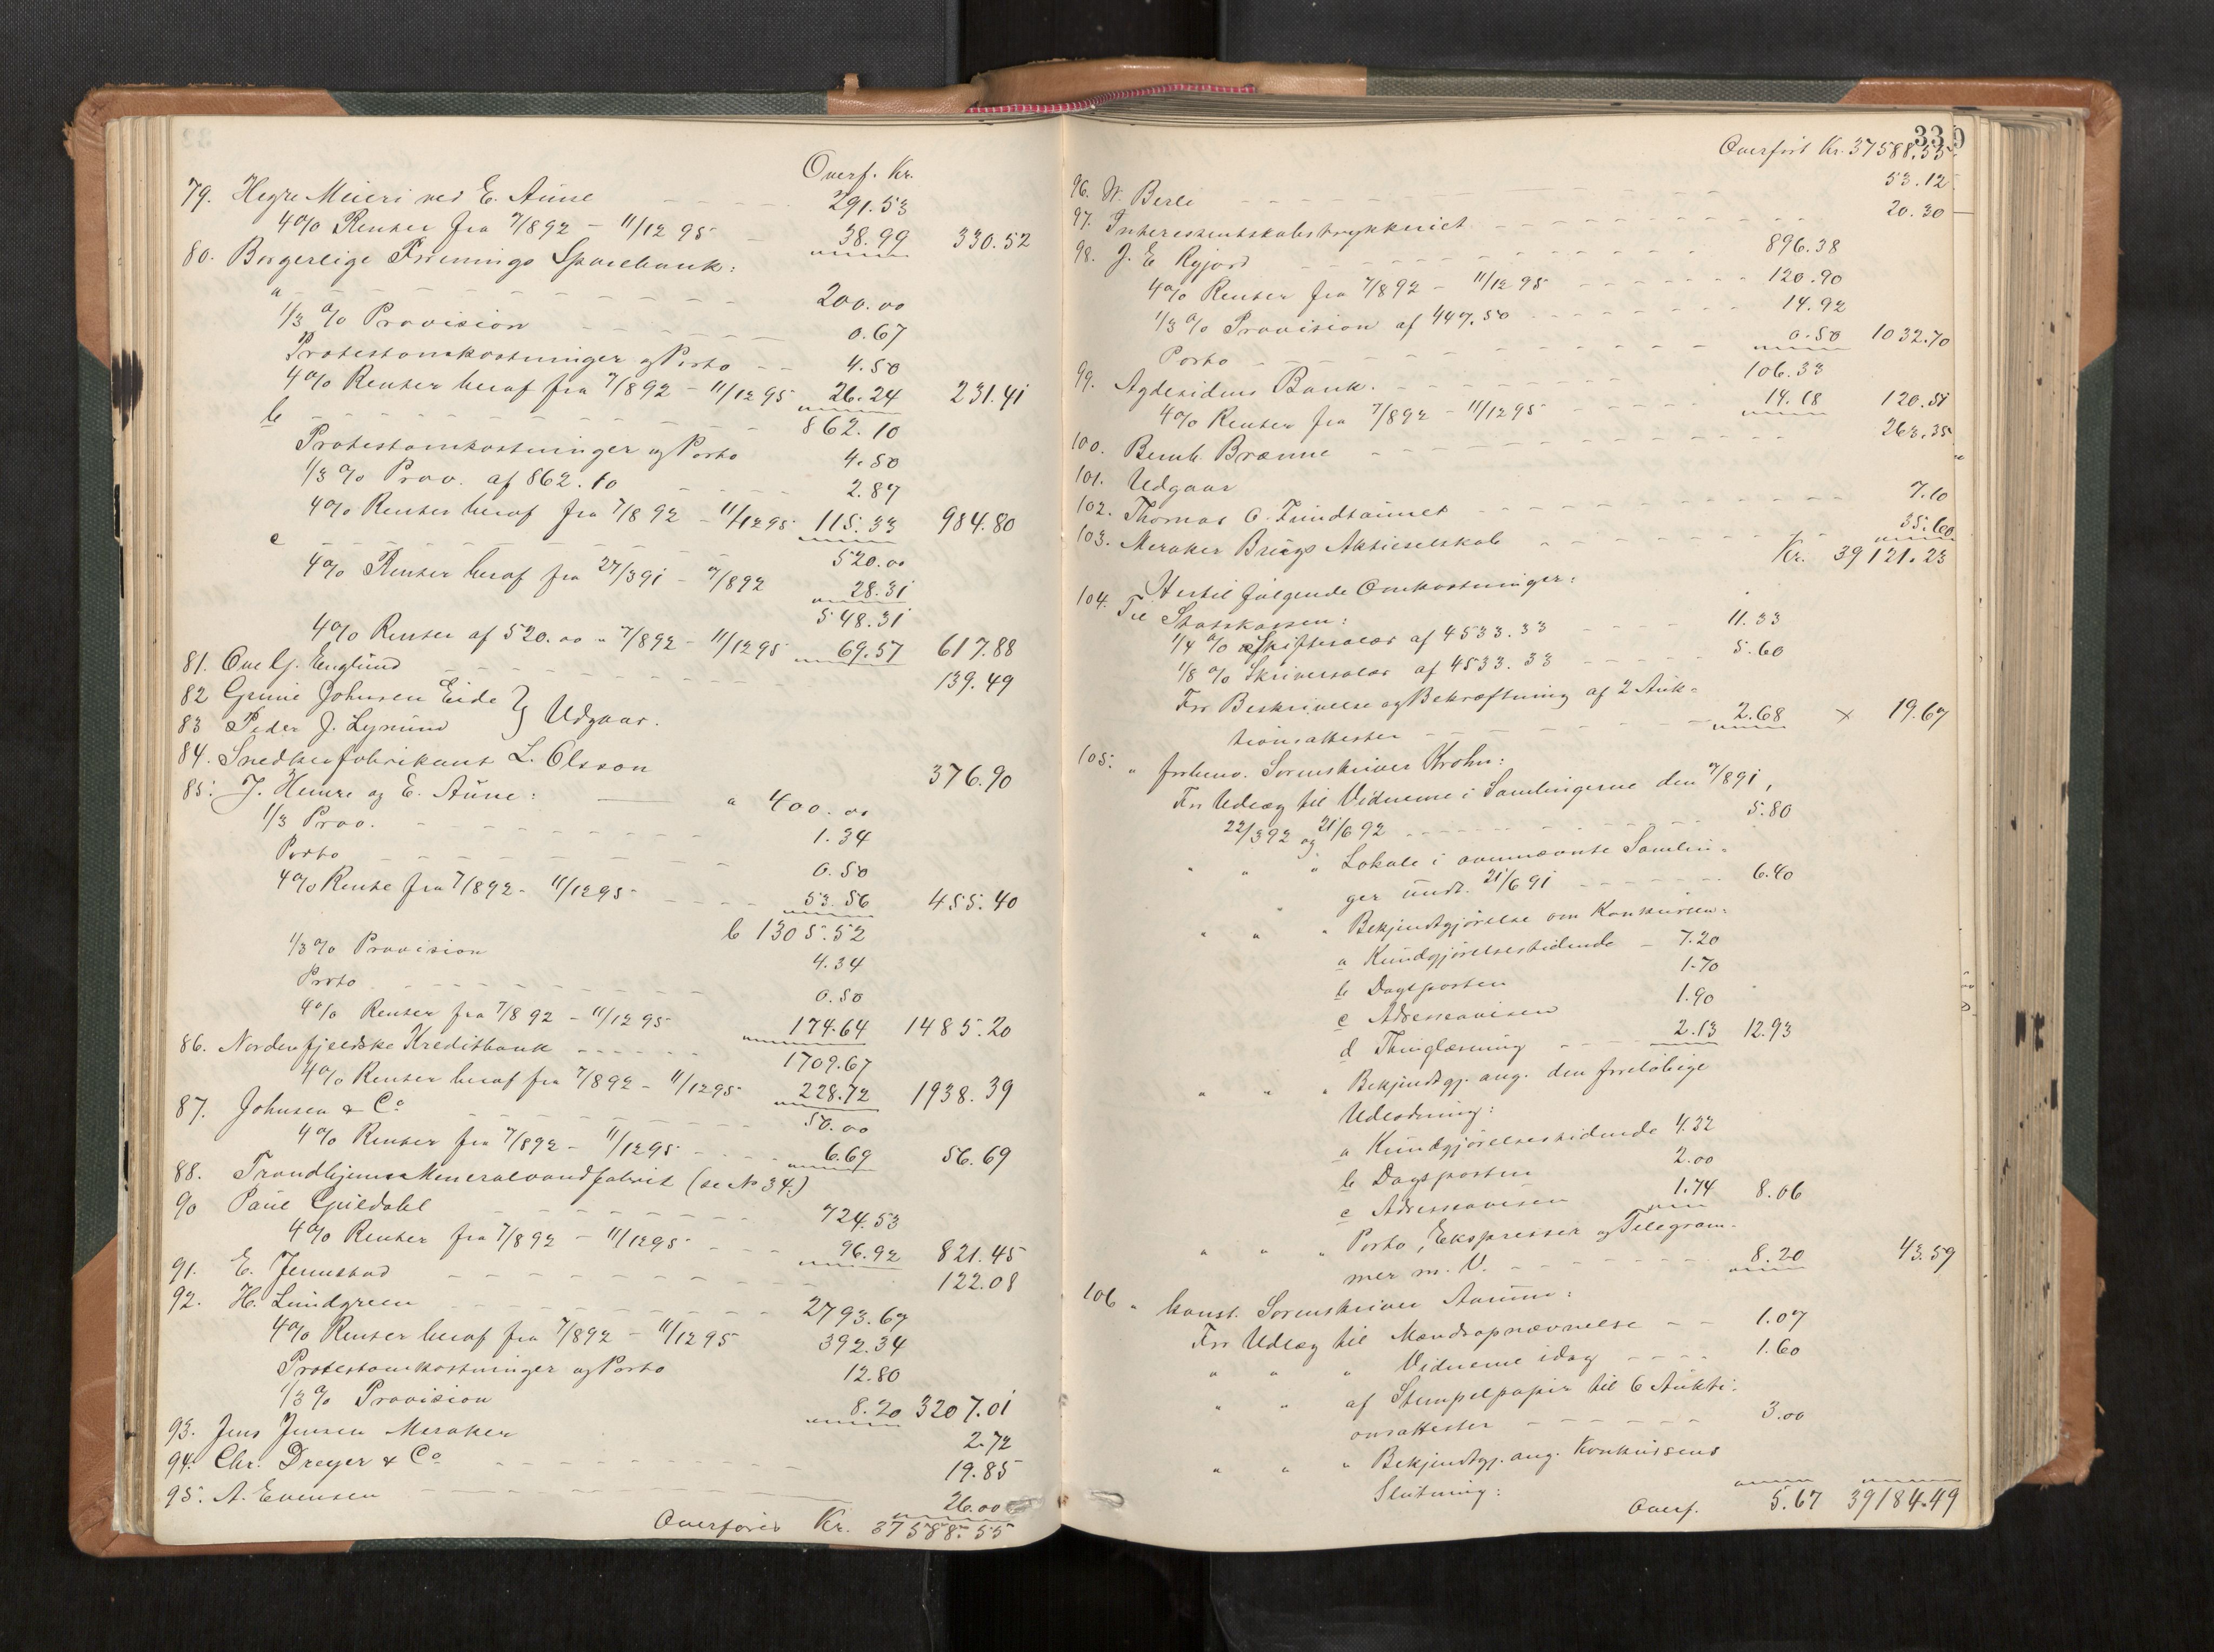 Overf. Kr.
79. Hegre Meieri ved E. Aune - - - - - 291.53
4% Renter fra 7/8 92 - 11/12 95 - 38.99 330.52
80. Borgerlige Forenings Sparebank:
a - - - - - - - - - - 200.00
1/3 % Provision - - - - - 0.67
Protestomkostninger og Porto - - 4.50
4% Renter heraf fra 7/8 92 - 11/12 95 26.24 231.41
b - - - - - - - - - - 862.10
Protestomkostninger og Porto 4.50
1/3 % Prov. af 862.10 - - - - 2.87
4% Renter heraf fra 7/8 92 - 11/12 95 115.33 984.80
c - - - - - - - - - - 520.00
4% Renter heraf fra 27/3 91 - 7/8 92 28.31
548.31
4% Renter af 520.00 " 7/8 92 - 11/12 95 69.57 617.88
81. Ove Englund - - - - - - - - 139.49
82 Grunie Johnsen Eide } Udgaar.
83 Peder J. Lynum
84. Snedkerfabrikant L. Olsson 376.90
85. J. Heimre og E. Aune: a 400.00
1/3 Prov. - - - - - - - - 1.34
Porto - - - - - - - - - 0.50
4% Rente fra 7/8 92 - 11/12 95 - - - - 53.56 455.40
b 1305.52
1/3 % Provision 4.34
Porto - - - - - - - - 0.50
4% Renter fra 7/8 92 - 11/12 95 174.64 1485.20
86. Nordenfjeldske Kreditbank - - - - - - 1709.67
4% Renter heraf fra 7/8 92 - 11/12 95 228.72 1938.39
87. Johnsen & Co - - - - - - - - 50.00
4% Renter fra 7/8 92 - 11/12 95 - - - - 6.69 56.69
88. Trondhjems Mineralvandfabrik (se No 34.)
90 Paul Guldahl - - - - - - - - 724.53
4% Renter fra 7/8 92 - 11/12 95 - - - 96.92 821.45
91. E. Jennstad - - - - - - - - - 122.08
92. H. Lundgreen - - - - - - - - - 2793.67
4% Renter heraf fra 7/8 92 - 11/12 95 392.34
Protestomkostninger og Porto 12.80
1/3 % Provision 8.20 3207.01
93. Jens Jensen Meraker 2.72
94. Chr. Dreyer & Co - - - - - - - - 19.85
95. A. Evensen - - - - - - - 26.00
Overføres Kr. 37588.55
339
Overført Kr. 37588.55
96. W. Berli - - - - - - - 53.12
97. Interessentskabstrykkeriet - - - - - - 20.30
98. J. E. Ryjord - - - - - - - - - 896.38
4% Renter fra 7/8 92 - 11/12 95 - - - - - - 120.90
1/3 % Provision af 447.50 - - - - - - - - 14.92
Porto - - - - - - - - - 0.50 1032.70
99. Agdesidens Bank. - - - - - - - - 106.33
4% Renter fra 7/8 92 - 11/12 95 - - - - - 14.18 120.51
100. Bernh. Brænne - - - - - - - - - 263.35
101. Udgaar "
102. Thomas O. Fundtaunet - - - - - - - - 7.10
103. Meraker Brugs Aktieselskab - - - - - - - 35.60
Kr. 39121.23
Hertil følgende Omkostninger:
104. Til Statskassen:
1/4 % Skiftesalær af 4533.33 - - - - 11.33
1/8 % Skriversalær af 4533.33 - - - - - 5.60
For Beskrivelse og Bekræftning af 2 Auk-
tionsattester - - - - - - - 2.68 × 19.67
105. " forhenv. Sorenskriver Krohn:
For Udlæg til Vidnerne i Samlingerne den 7/8 91,
22/3 92 og 21/6 92 - - - - - - - - - 5.80
" " " Lokale i ovennævnte Samlin-
ger undt. 21/6 91 - - - - - - - 6.40
" " " Bekjendtgjørelse om Konkursen:
a Kundgjørelsestidende - 7.20
b Dagsposten 1.70
c Adresseavisen 1.90
d Thinglæsning - - - - 2.13 12.93
" " " Bekjendtgj. ang. den foreløbige
Udlodning:
a Kundgjørelsestidende 4.32
b Dagsposten 2.00
c Adresseavisen 1.74 8.06
" " " Porto, Expresser og Telegram-
mer m. V. - - - - - - - - 8.20 43.59
106 " konst. Sorenskriver Aarum:
For Udlæg til Mandsopnævnelse - - 1.07
" " " Vidnerne idag - - - - 1.60
" " af Stempelpapir til 6 Aukti-
onsattester - - - - - - 3.00
" " " Bekjendtgj. ang. Konkursens
Slutning:
Overf. 5.67 39184.49